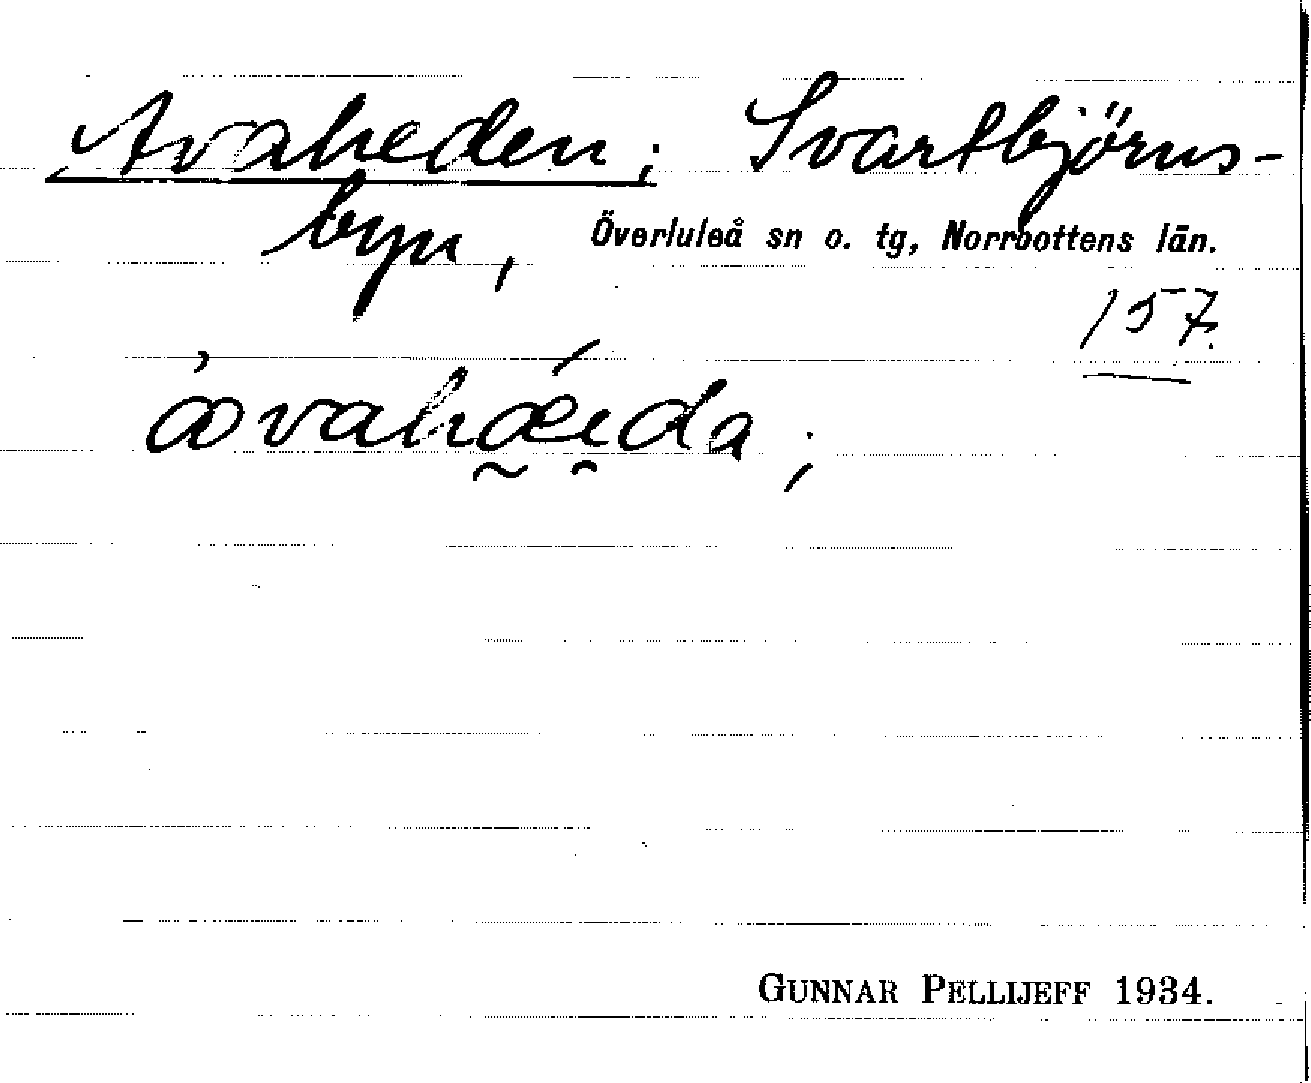 Avaheden; Svartbjörns-
byn, Överluleå sn o. tg, Norrbottens län.
157.
àvahǽ̰i̯da;
GUNNAR PELLIJEFF 1934.